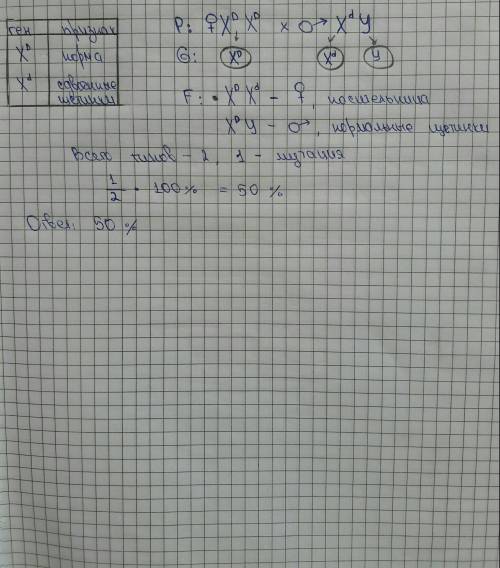 ген признак
X^D норма
X^d сдвоенные щетинки
P: ♀ X^D X^D × ♂ X^d Y
G: X^D X^d Y
F: • X^D X^d – ♀, носительница
X^D Y – ♂, нормальные щетинки
Всего типов – 2, 1 – мутация
1/2 • 100% = 50 %
Ответ: 50 %